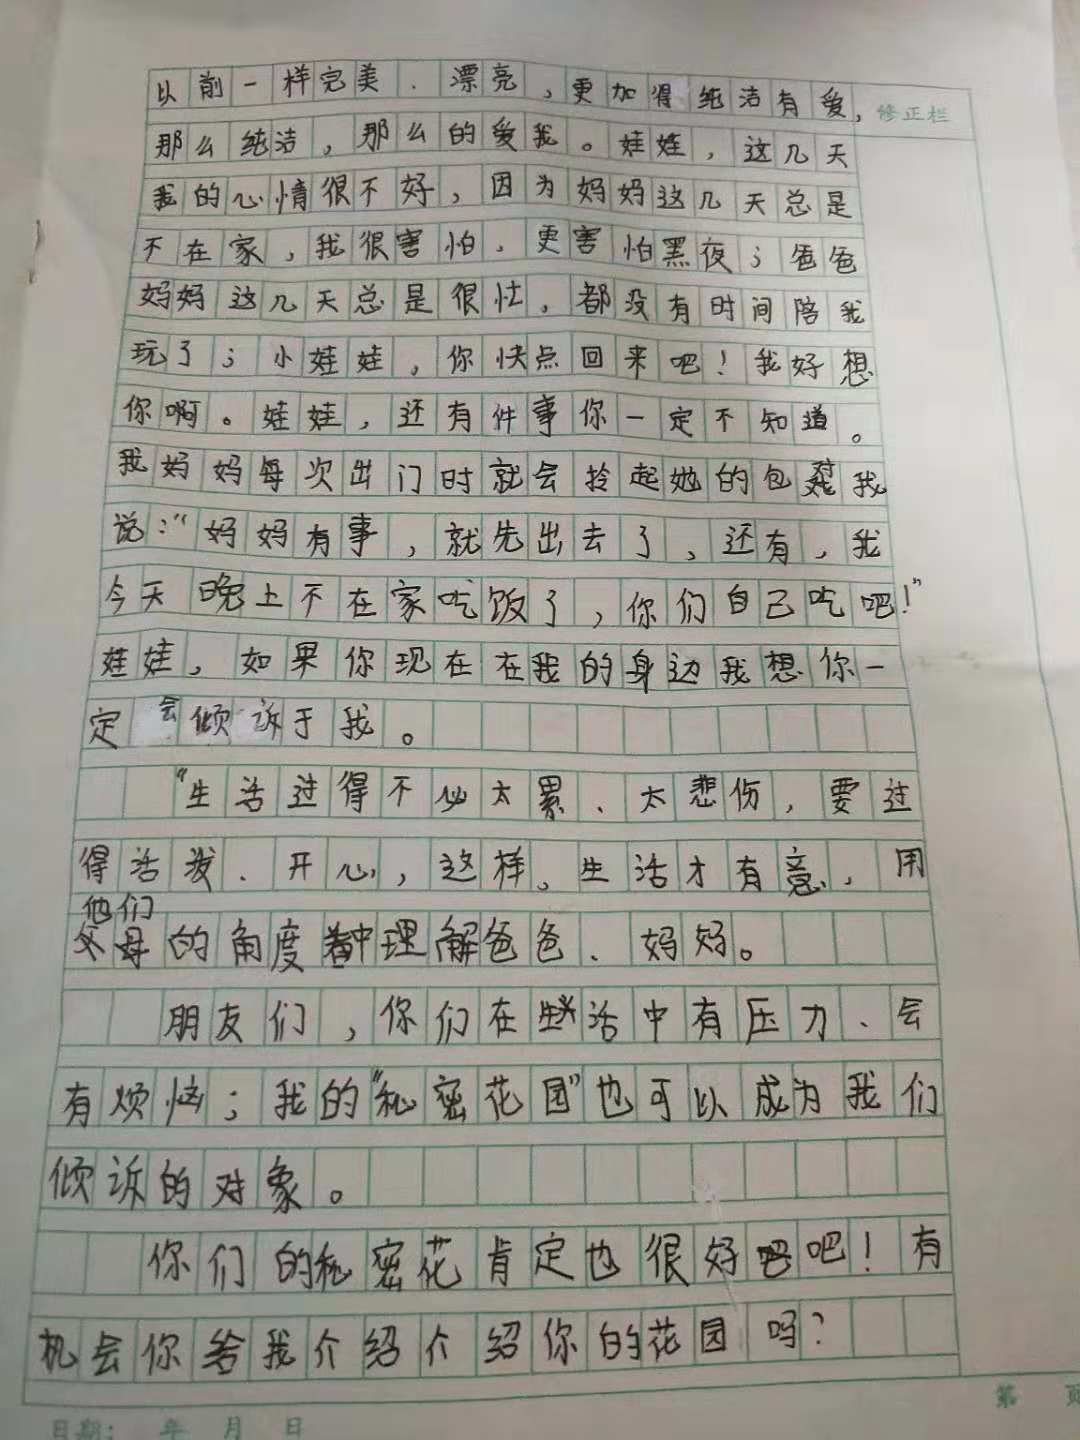 以前一样完美、漂亮,更加得纯洁有爱,
修正栏
那么纯洁,那么的爱我。娃娃,这几天
我的心情很不好,因为妈妈这几天总是
不在家,我很害怕、更害怕黑夜;爸爸
妈妈这几天总是很忙,都没有时间陪我
玩了;小娃娃,你快点回来吧!我好想
你啊。娃娃,还有件事你一定不知道。
我妈妈每次出门时就会拎起她的包对我
说:“妈妈有事,就先出去了,还有,我
今天晚上不在家吃饭了,你们自己吃吧!”
娃娃,如果你现在在我的身边我想你一
定会倾诉于我。
“生活过得不必太累、太悲伤,要过
得活泼、开心,这样,生活才有意,用
他们
父母的角度中理解爸爸、妈妈。
朋友们,你们在生活中有压力、会
有烦恼;我的“秘密花园”也可以成为我们
倾诉的对象。
你们的秘密花肯定也很好吧吧!有
机会你给我介绍介绍你的花园吗?
第 页
日期: 年 月 日